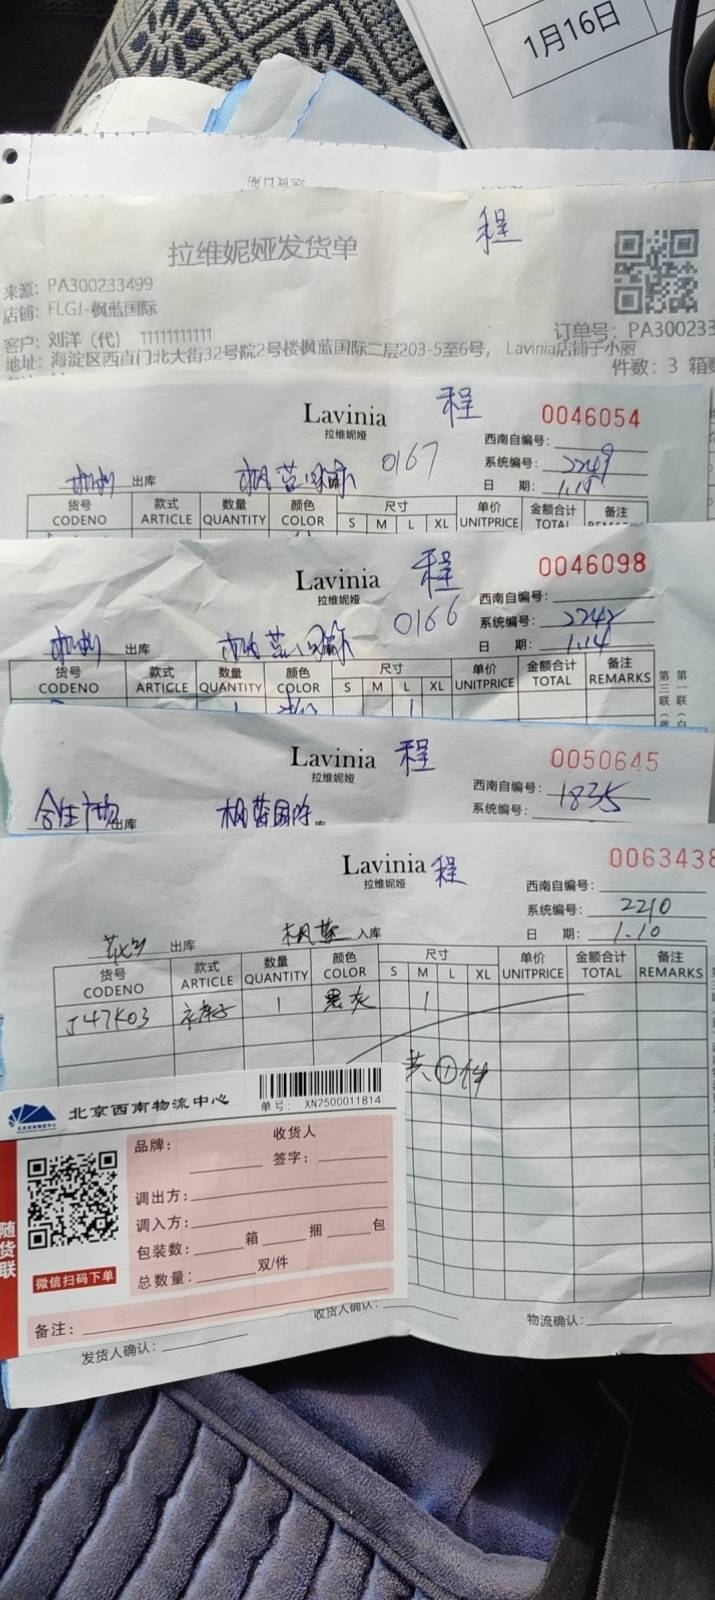 1月16日
程
拉维妮娅发货单
来源: PA300233499
店铺: FLGJ-枫蓝国际
客户: 刘洋（代） 11111111111
订单号: PA300233
地址: 海淀区西直门北大街32号院2号楼枫蓝国际二层203-5至6号， Lavinia店铺于小丽
件数: 3 箱数
Lavinia 程 0046054
拉维妮娅
西南自编号:
0167
系统编号: 2249
出库 枫蓝国际
日 期: 1.14
货号 款式 数量 颜色 尺寸 单价 金额合计 备注
CODENO ARTICLE QUANTITY COLOR S M L XL UNITPRICE TOTAL REMARKS
Lavinia 程 0046098
拉维妮娅
西南自编号:
0166
系统编号: 2248
出库 枫蓝国际
日 期: 1.14
货号 款式 数量 颜色 尺寸 单价 金额合计 备注
CODENO ARTICLE QUANTITY COLOR S M L XL UNITPRICE TOTAL REMARKS
第三联
第一联
1 1
Lavinia 程 0050645
拉维妮娅
西南自编号:
系统编号: 1835
合生广场 出库 枫蓝国际
Lavinia 程 0063438
拉维妮娅
西南自编号:
系统编号: 2210
出库 枫蓝 入库
日 期: 1.10
货号 款式 数量 颜色 尺寸 单价 金额合计 备注
CODENO ARTICLE QUANTITY COLOR S M L XL UNITPRICE TOTAL REMARKS
J47K03 1 黑灰 1
共①件
北京西南物流中心
单号: XN2500011814
品牌: 收货人
签字:
调出方:
调入方:
包装数: 箱 捆 包
总数量: 双/件
随货联
微信扫码下单
备注:
发货人确认: 收货人确认: 物流确认: